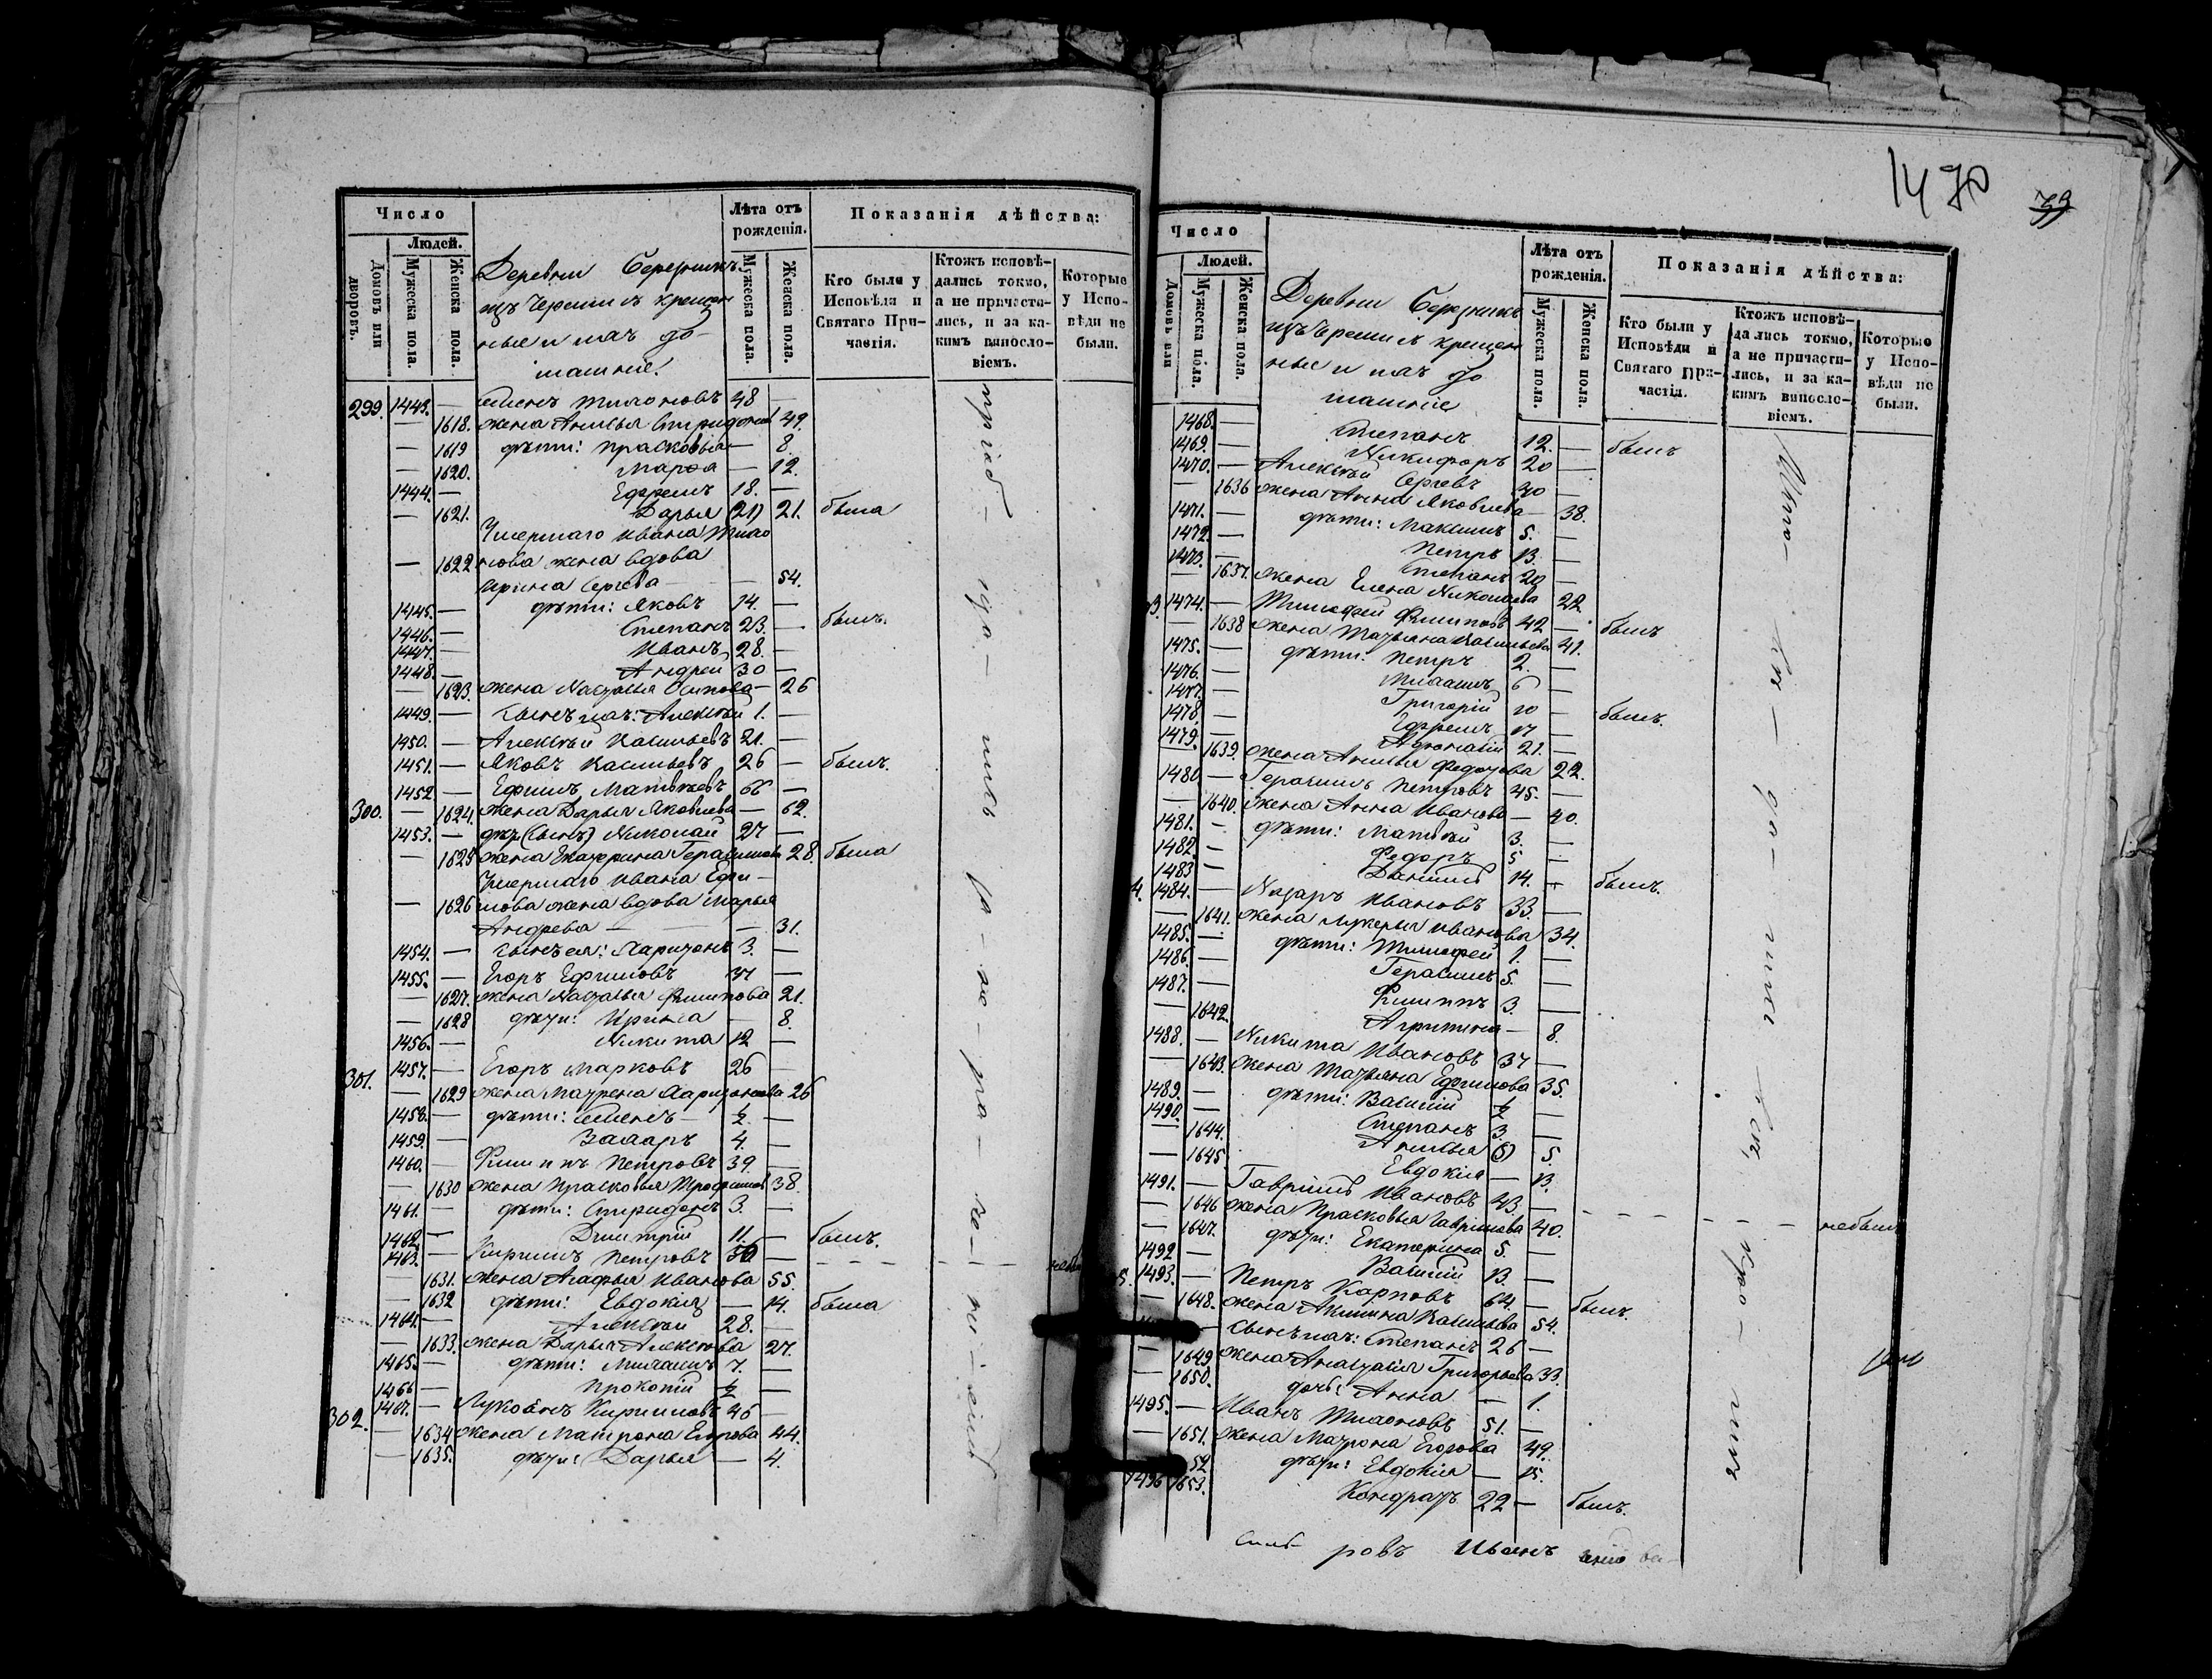 Число
Людей.
Домовъ или дворовъ.
Мужеска пола.
Женска пола.
Деревни Березникъ
изъ Черемисъ крещен
ные и ихъ до-
машніе.
Лѣта отъ рожденія.
Мужеска пола.
Женска пола.
Показанія дѣйства:
Кто были у Исповѣди и Святаго Причастія.
Ктожъ исповѣдались токмо, а не причастились, и за какимъ винословіемъ.
Которые у Исповѣди не были.
299. 1443. — Семенъ Тихоновъ 48 —
— 1618. жена Анисья Спиридонова 49.
— 1619 дѣти: Прасковья — 8.
— 1620. Марѳа — 12.
1444. — Ефремъ 18. —
— 1621. Дарья (21) 21. была
Умершаго Ивана Тихо
— 1622 нова жена вдова
Ирина Сергѣева — 54.
1445. — дѣти: Яковъ 14. —
1446. — Степанъ 23. — былъ.
1447. — Иванъ 28. —
1448. — Андрей 30 —
— 1623. жена Настасья Осипова — 26
1449. — сынъ ихъ: Алексѣй 1. —
1450. — Алексѣй Васильевъ 21. —
1451. — Яковъ Васильевъ 26 — былъ.
1452 — Ефимъ Матвѣевъ 66 —
300. — 1624. жена Дарья Яковлева — 62.
1453. — (сынъ) Николай 27 —
— 1625 жена Екатерина Герасимова 28. была
Умершаго Ивана Ефи-
— 1626 мова жена вдова Марья
Андреева — — 31.
1454. — сынъ ея: Харитонъ 3. —
1455. — Егоръ Ефимовъ 37 —
— 1627. жена Настасья Филипова 21.
— 1628 дѣти: Ирина — 8.
1456. — Никита 12 —
301. 1457. — Егоръ Марковъ 26
— 1629 жена Матрена Харитонова 26
1458. — дѣти: Семенъ — ½ —
1459. — Захаръ 4. —
1460. — Филиппъ Петровъ 39 —
— 1630 жена Прасковья Трофимова 38.
1461. — дѣти: Спиридонъ 3. —
1462 — Димитрій 11. — былъ.
1463. — Кирилъ Петровъ 56 —
— 1631. жена Агафья Иванова 55.
— 1632 дѣти: Евдокія — 14. была
1464. — Алексѣй 28. —
— 1633. жена Дарья Алексѣева 27.
1465. — дѣти: Михаилъ 7. —
1466 — Прокопій ½ —
302. 1467. — Лукоянъ Кириловъ 46 —
— 1634 жена Матрона Егорова 44.
— 1635. дѣти: Дарья — 4.
1470
79
Число
Людей.
Домовъ или
Мужеска пола.
Женска пола.
Деревни Березникъ
изъ Черемисъ крещен
ные и ихъ до
машніе
Лѣта отъ рожденія.
Мужеска пола.
Женска пола.
Показанія дѣйства:
Кто были у Исповѣди и Святаго Причастія.
Ктожъ исповѣдались токмо, а не причастились, и за какимъ винословіемъ.
Которые у Исповѣди не были.
1468. — Степанъ 12. — былъ
1469. — Никифоръ 20 —
1470. — Алексѣй Сергѣевъ 40 —
— 1636 жена Анна Яковлева — 38.
1471. — дѣти: Максимъ 5. —
1472. — Петръ 13. —
1473. — Степанъ 20 —
— 1637. жена Елена Николаева 22
3. 1474. — Тимофей Филиповъ 42 — былъ
— 1638 жена Татьяна Васильева 41.
1475. — дѣти: Петръ 2. —
1476. — Михаилъ 6 —
1477. — Григорій 10 — былъ.
1478. — Ефремъ 17 —
1479. — Афонасій 21. —
— 1639. жена Анисья Федотова 22.
1480 — Герасимъ Петровъ 45. —
— 1640. жена Анна Иванова — 40.
1481. — дѣти: Матвѣй 3. —
1482. — Федоръ 5 —
1483 — Даніилъ 14. — былъ.
4. 1484. — Назаръ Ивановъ 33. —
— 1641. жена Лукерья Иванова 34.
1485. — дѣти: Тимофей 1. —
1486. — Герасимъ 5. —
1487. — Филиппъ 3. —
— 1642. Агрипина — 8.
1488. — Никита Ивановъ 37 —
— 1643. жена Татьяна Ефимова 35.
1489. — дѣти: Василій ½ —
1490. — Степанъ 3. —
— 1644. Анисья (5) 5.
— 1645 Евдокія — 13.
1491. — Гавріилъ Ивановъ 43. —
— 1646 жена Прасковья Гаврилова 40. небыли
— 1647. дѣти: Екатерина 5. —
1492 — Василій 13. —
5. 1493. — Петръ Карповъ 64. — былъ.
— 1648. жена Акилина Васильева 54.
— сынъ ихъ: Степанъ 26 —
— 1649 жена Анастасія Григорьева 33.
— 1650. дочь: Анна — 1.
1495. — Иванъ Тихоновъ 51. —
— 1651. жена Матрона Егорова 49.
52 дѣти: Евдокія — 15.
1496 1653. Кондратъ 22 — былъ.
ровъ Иванъ